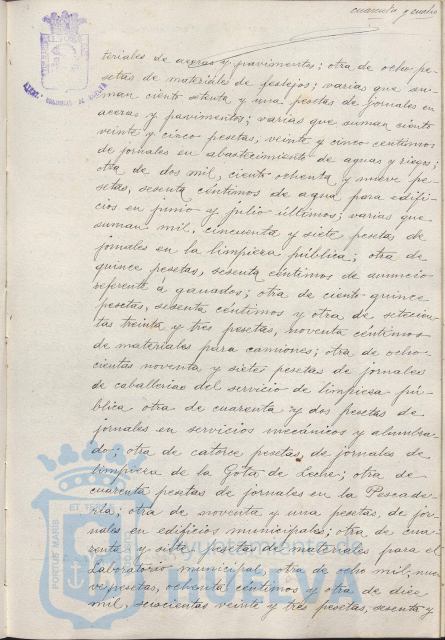 cuarenta y cuatro
teriales de aceras y pavimentos; otra de ocho pe-
setas de materiales de festejos; varias que su-
man ciento setenta y una pesetas de jornales en
aceras y pavimentos; varias que suman ciento
veinte y cinco pesetas, veinte y cinco centimos
de jornales en abastecimiento de aguas y riegos;
otra de dos mil, ciento ochenta y nueve pe-
setas, sesenta céntimos de agua para edifi-
cios en junio y julio ultimos; varias que
suman mil, cincuenta y siete pesetas de
jornales en la limpieza pública; otra de
quince pesetas, sesenta céntimos de anuncio
referente a ganados; otra de ciento quince
pesetas, sesenta céntimos y otra de setecien-
tas treinta y tres pesetas, noventa céntimos
de materiales para camiones; otra de ocho-
cientas noventa y siete pesetas de jornales
de caballerias del servicio de limpieza pú-
blica otra de cuarenta y dos pesetas de
jornales en servicios mecánicos y alumbra-
do; otra de catorce pesetas, de jornales de
limpieza de la Gota de Leche; otra de
cuarenta pesetas de jornales en la Pescade-
ria; otra de noventa y una pesetas, de jor-
nales en edificios municipales; otra de cua-
renta y siete pesetas de materiales para el
Laboratorio municipal, otra de ocho mil, nue-
ve pesetas, ochenta céntimos y otra de diez
mil, seiscientas veinte y tres pesetas, sesenta y
PORTUS MARIS
ET TE
Ayuntamiento de
HUELVA